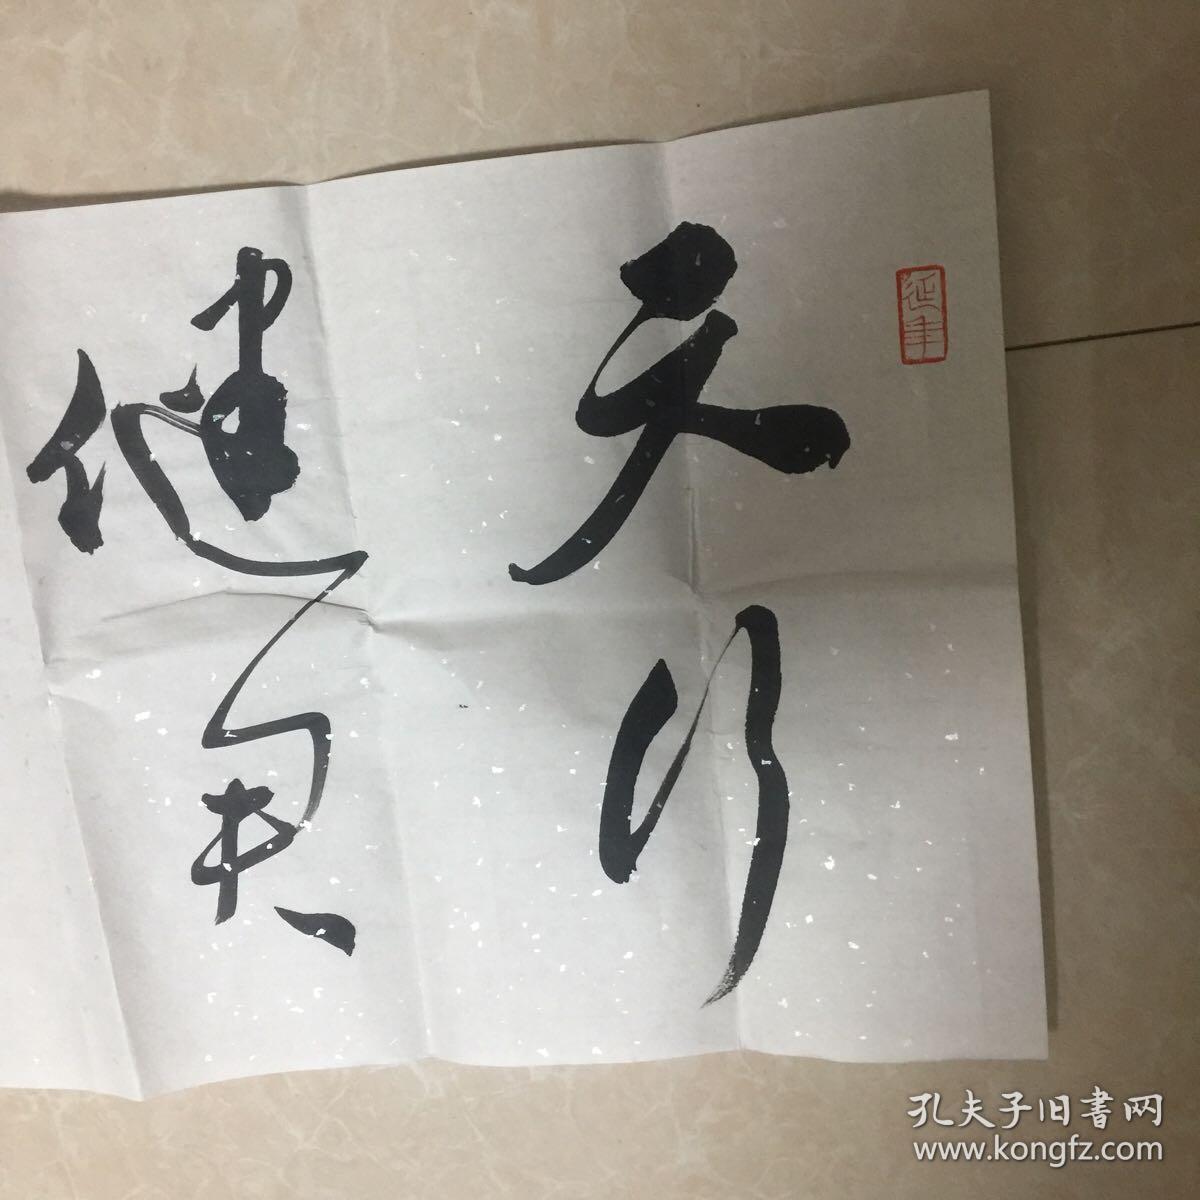 延年
天行
健君
孔夫子旧書网
www.kongfz.com